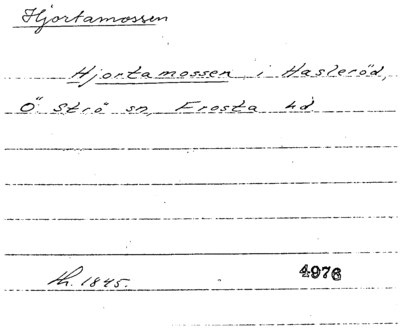 Hjortamossen
Hjortamossen i Hasleröd,
Ö. Strö sn, Frosta hd.
lh. 1845.
4976